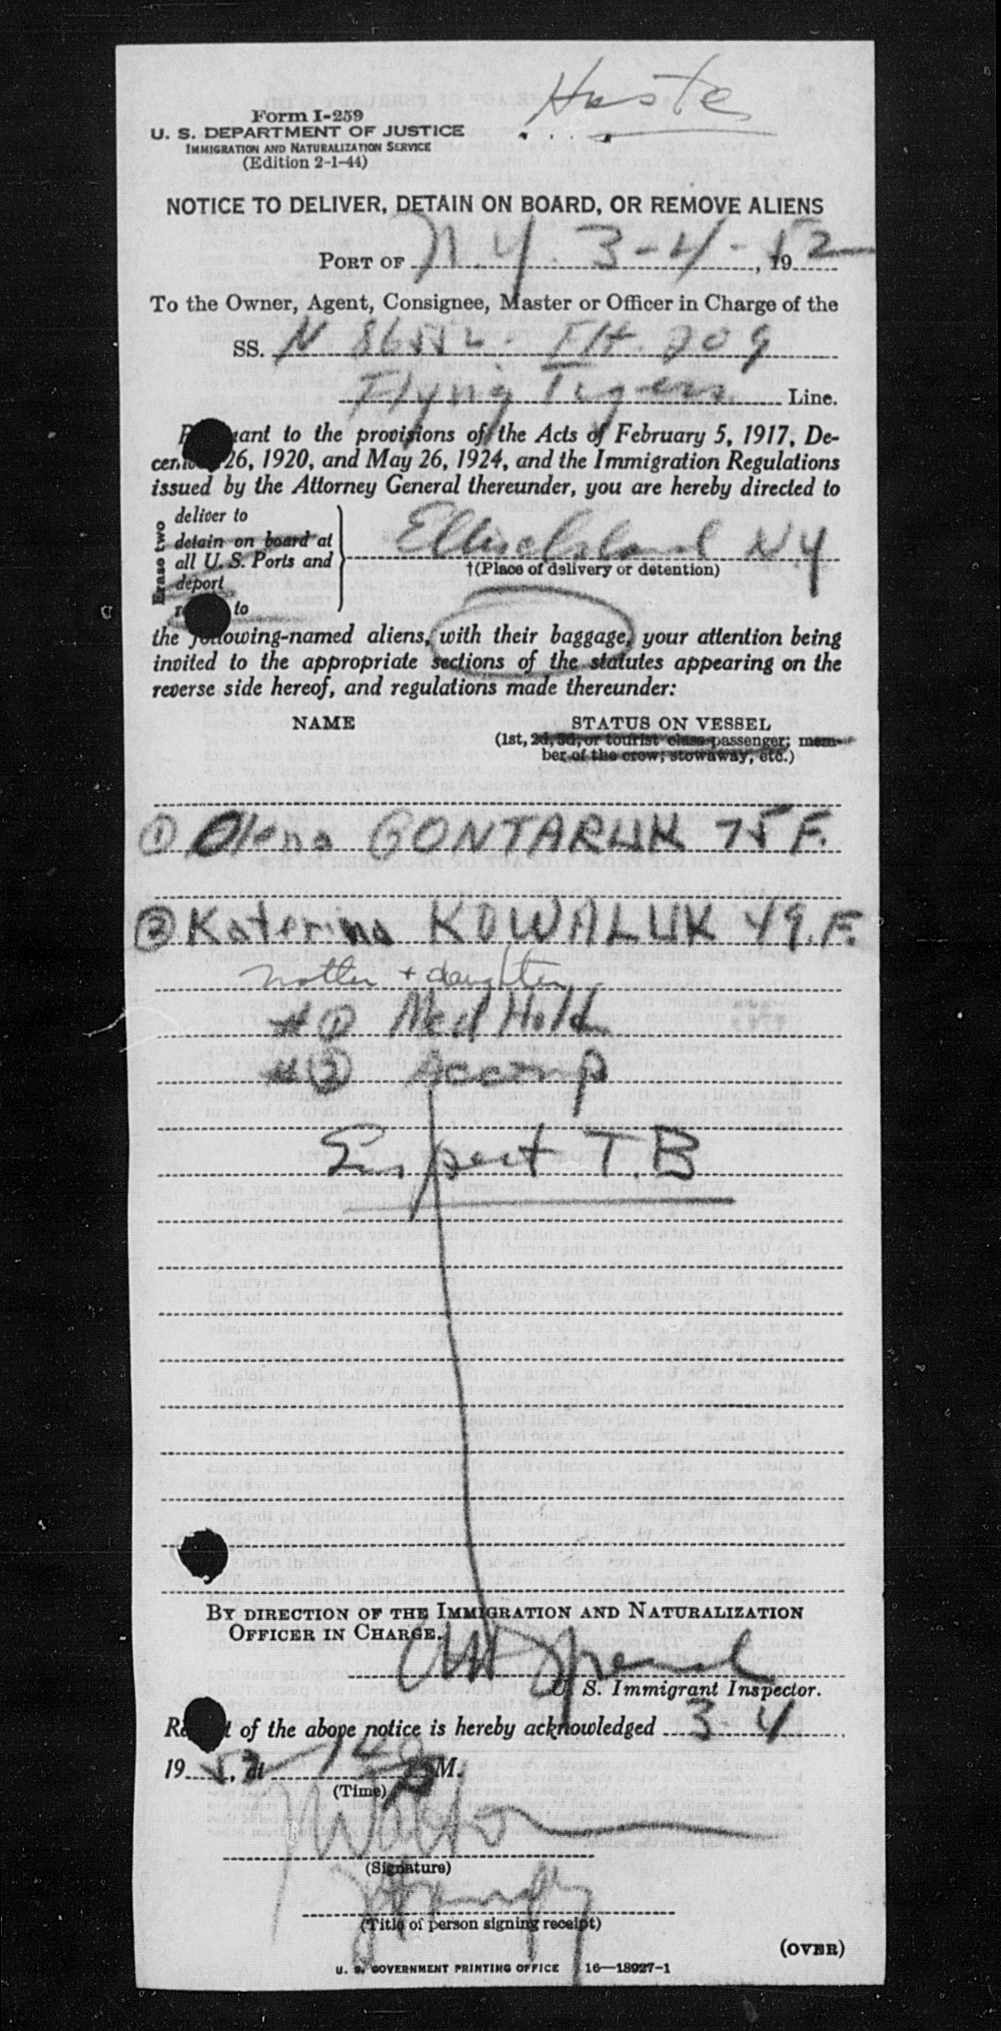 Haste
Form I-259
U. S. DEPARTMENT OF JUSTICE
IMMIGRATION AND NATURALIZATION SERVICE
(Edition 2-1-44)
NOTICE TO DELIVER, DETAIN ON BOARD, OR REMOVE ALIENS
PORT OF N.Y. 3-4-, 1952
To the Owner, Agent, Consignee, Master or Officer in Charge of the
SS. N FH. 209
Flying Tigers Line.
ant to the provisions of the Acts of February 5, 1917, De-
26, 1920, and May 26, 1924, and the Immigration Regulations
issued by the Attorney General thereunder, you are hereby directed to
Erase two
deliver to
detain on board at
all U. S. Ports and
deport
to
Ellis Island N.Y
†(Place of delivery or detention)
the following-named aliens, with their baggage, your attention being
invited to the appropriate sections of the statutes appearing on the
reverse side hereof, and regulations made thereunder:
NAME
STATUS ON VESSEL
(1st, 2d, 3d, or tourist class passenger; mem-
ber of the crew; stowaway, etc.)
① Olena GONTARUK 75 F.
② Katerina KOWALUK 49. F.
mother + daughter
#① Med Hold
#② Accomp
Suspect T.B
BY DIRECTION OF THE IMMIGRATION AND NATURALIZATION
OFFICER IN CHARGE.
U. S. Immigrant Inspector.
of the above notice is hereby acknowledged 3-4
1952, at M.
(Time)
Walton
(Signature)
(Title of person signing receipt)
(OVER)
U. S. GOVERNMENT PRINTING OFFICE 16—18927-1